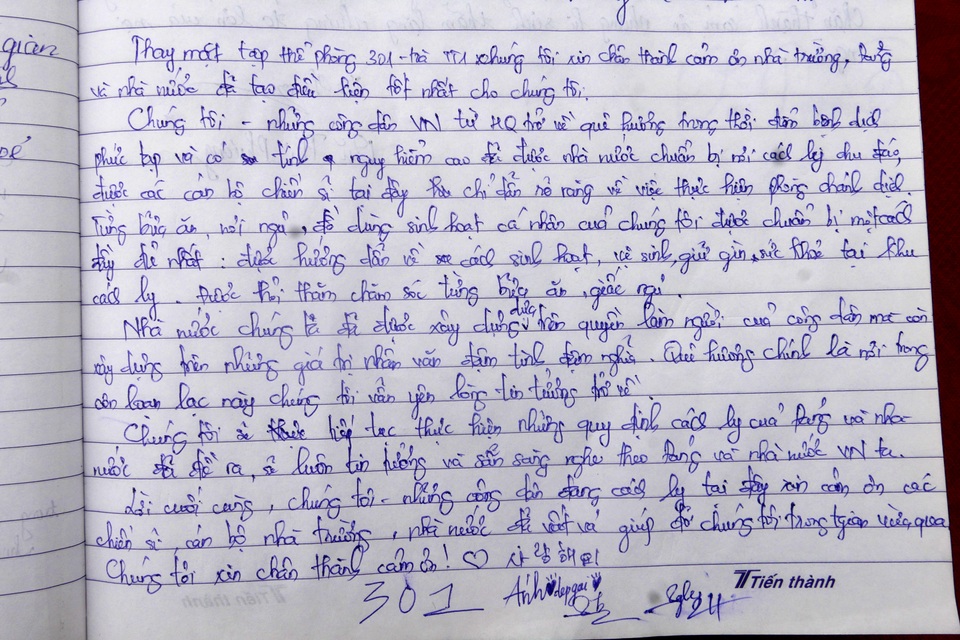 gian
Thay mặt tập thể phòng 301 - chúng tôi xin chân thành cảm ơn nhà trường, Đảng
và nhà nước đã tạo điều kiện tốt nhất cho chúng tôi.
Chúng tôi - những công dân VN từ HQ trở về quê hương trong thời điểm bệnh dịch
phức tạp và có tính nguy hiểm cao đã được nhà nước chuẩn bị nơi cách ly chu đáo,
được các cán bộ chiến sĩ tại đây chỉ dẫn rõ ràng về việc thực hiện phòng chánh dịch.
Từng bữa ăn, nơi ngủ, đồ dùng sinh hoạt cá nhân của chúng tôi được chuẩn bị một cách
đầy đủ nhất: được hướng dẫn về cách sinh hoạt, vệ sinh, giữ gìn sức khoẻ tại khu
cách ly. Được hỏi thăm chăm sóc từng bữa ăn, giấc ngủ.
Nhà nước chúng ta đã được xây dựng dựa trên quyền làm người của công dân mà còn
xây dựng trên những giá trị nhân văn đậm tình đậm nghĩa. Quê hương chính là nơi trong
cơn loạn lạc này chúng tôi vẫn yên lòng tin tưởng trở về
Chúng tôi sẽ tiếp tục thực hiện những quy định cách ly của Đảng và nhà
nước đã đề ra, sẽ luôn tin tưởng và sẵn sàng nghe theo Đảng và nhà nước VN ta.
Lời cuối cùng, chúng tôi - những công dân đang cách ly tại đây xin cảm ơn các
chiến sĩ, cán bộ nhà trường, nhà nước đã vất vả giúp đỡ chúng tôi trong tgian vừa qua
Chúng tôi xin chân thành cảm ơn! ♡ 사랑해요!
301 Ánh đẹp gái
Tiến thành